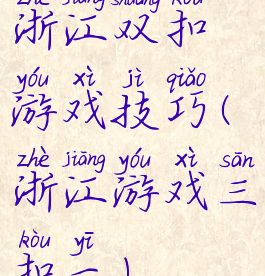 zhè jiāng shuāng kòu
浙江双扣
yóu xì jì qiǎo
游戏技巧(
zhè jiāng yóu xì sān
浙江游戏三
kòu yī
扣一)